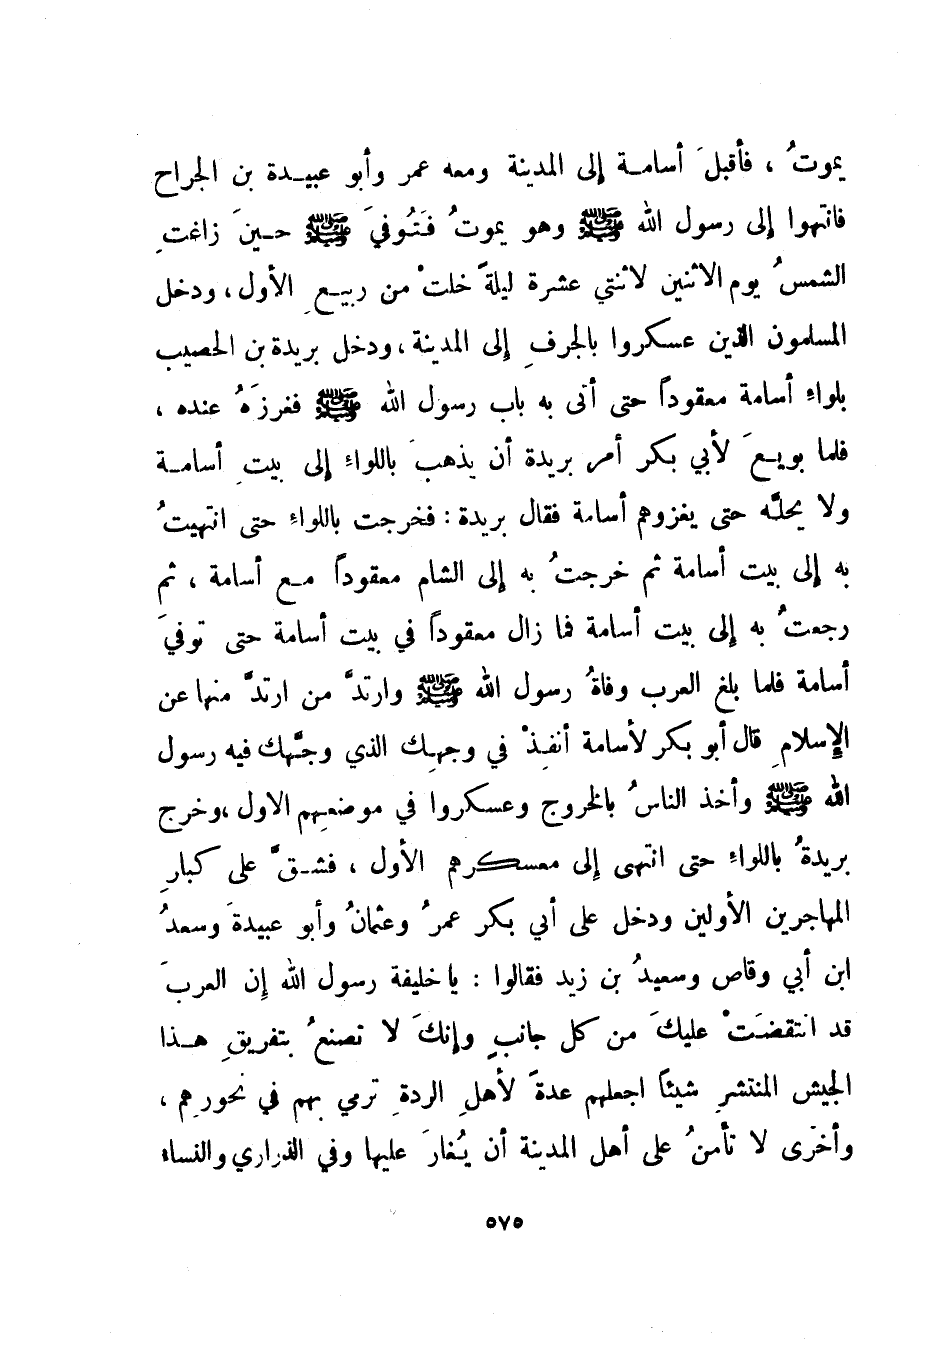 يموتُ ، فأقبلَ أسامة إلى المدينة ومعه عمر وأبو عبيدة بن الجراح
فانتهوا إلى رسول الله ﷺ وهو يموتُ فَتُوفيَ ﷺ حينَ زاغتِ
الشمسُ يوم الاثنين لاثنتي عشرة ليلةً خلتْ من ربيعِ الأول ، ودخل
المسلمون الذين عسكروا بالجرفِ إلى المدينة ، ودخل بريدة بن الحصيب
بلواءِ أسامة معقوداً حتى أتى به باب رسول الله ﷺ فغرزَهُ عنده ،
فلما بويعَ لأبي بكر أمر بريدة أن يذهبَ باللواءِ إلى بيتِ أسامة
ولا يحلَّه حتى يغزوهم أسامة فقال بريدة : فخرجت باللواءِ حتى انتهيتُ
به إلى بيت أسامة ثم خرجتُ به إلى الشام معقوداً مع أسامة ، ثم
رجعتُ به إلى بيت أسامة فما زال معقوداً في بيت أسامة حتى توفيَ
أسامة فلما بلغ العرب وفاةُ رسول الله ﷺ وارتدَّ من ارتدَّ منها عن
الإسلامِ قال أبو بكر لأسامة أنفِذْ في وجهِك الذي وجَّهك فيه رسول
الله ﷺ وأخذ الناسُ بالخروج وعسكروا في موضعِهم الاول ،وخرج
بريدةُ باللواءِ حتى انتهى إلى معسكرهم الأول ، فشقَّ على كبارِ
المهاجرين الأولين ودخل على أبي بكر عمرُ وعثمانُ وأبو عبيدةَ وسعدُ
ابن أبي وقاص وسعيدُ بن زيد فقالوا : ياخليفة رسول الله إن العربَ
قد انتقضَتْ عليكَ من كل جانبٍ وإنكَ لا تصنعُ بتفريقِ هذا
الجيش المنتشرِ شيئاً اجعلهم عدةً لأهلِ الردةِ ترمي بهم في نحورِهم ،
وأخرى لا تأمنُ على أهل المدينة أن يُغارَ عليها وفي الذراري والنساء
٥٧٥